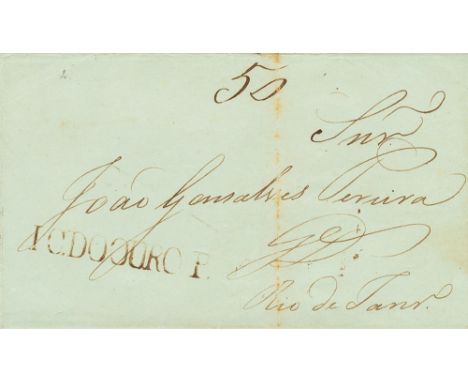 50
Snr.
João Gonsalves Pereira
Gde.
P.C.DO OURO P.
Rio de Janro.